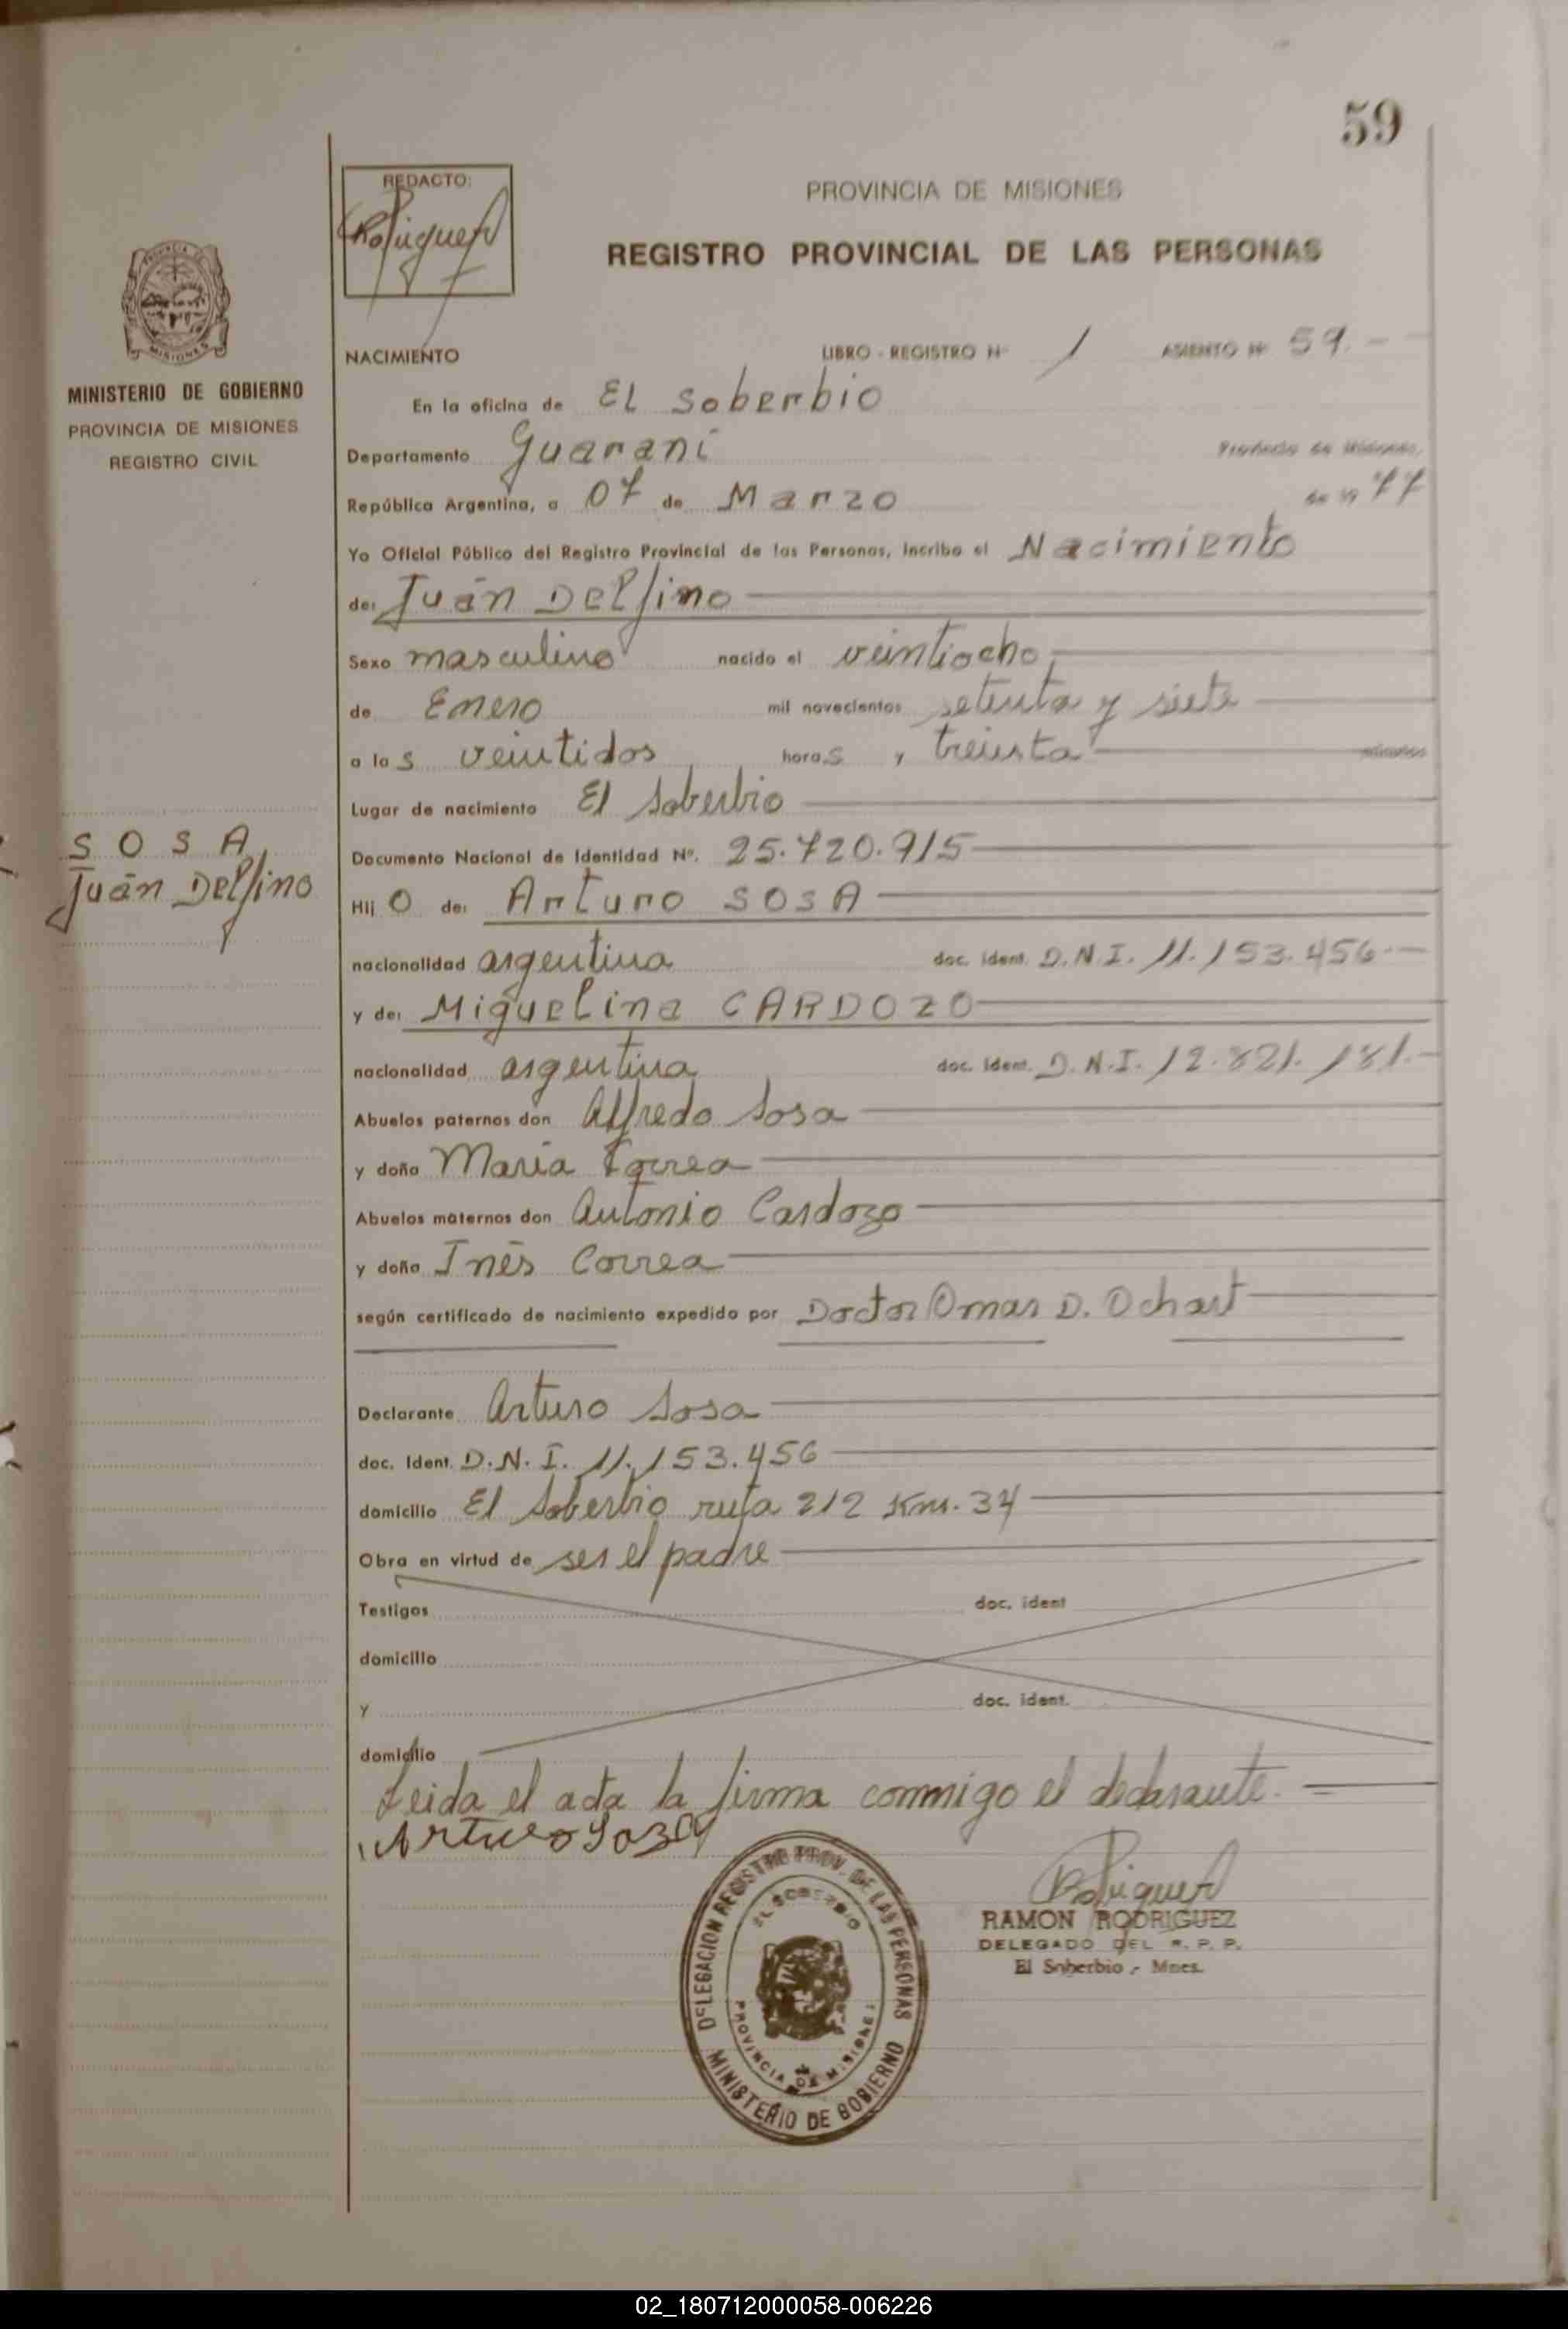 59
REDACTO:
PROVINCIA DE MISIONES
REGISTRO PROVINCIAL DE LAS PERSONAS
MISIONES
MINISTERIO DE GOBIERNO
PROVINCIA DE MISIONES
REGISTRO CIVIL
NACIMIENTO LIBRO - REGISTRO Nº 1 ASIENTO Nº 59.-
En la oficina de EL Soberbio
Departamento Guaraní Provincia de Misiones,
República Argentina, a 07 de Marzo de 19 77
Yo Oficial Público del Registro Provincial de las Personas, incribo el Nacimiento
de: Juán Delfino
Sexo masculino nacido el veintiocho,
de Enero mil novecientos setenta y siete
a las veintidos horas y treinta minutos
Lugar de nacimiento El Soberbio
Documento Nacional de Identidad Nº. 25.720.915
SOSA
Juán Delfino
Hij O de: Arturo SOSA
nacionalidad argentina doc. ident. D.N.I. 11.153.456.-
y de: Miguelina CARDOZO
nacionalidad argentina doc. ident. D.N.I. 12.821.181.-
Abuelos paternos don Alfredo Sosa
y doña María
Abuelos maternos don Antonio Cardozo
y doña Inés Correa
según certificado de nacimiento expedido por Doctor Omar D. Ochart
Declarante Arturo Sosa
doc. Ident. D.N.I. 11.153.456
domicilio El Soberbio ruta 212 Km. 34
Obra en virtud de ser el padre
Testigos doc. ident
domicilio
y doc. ident.
domicilio
Leida el acta la firma conmigo el declarante.
Arturo Soza
DELEGACION REGISTRO PROV. DE LAS PERSONAS
EL SOBERBIO
PROVINCIA DE MISIONES
MINISTERIO DE GOBIERNO
RAMON RODRIGUEZ
DELEGADO DEL R. P. P.
El Soberbio - Mnes.
02_180712000058-006226